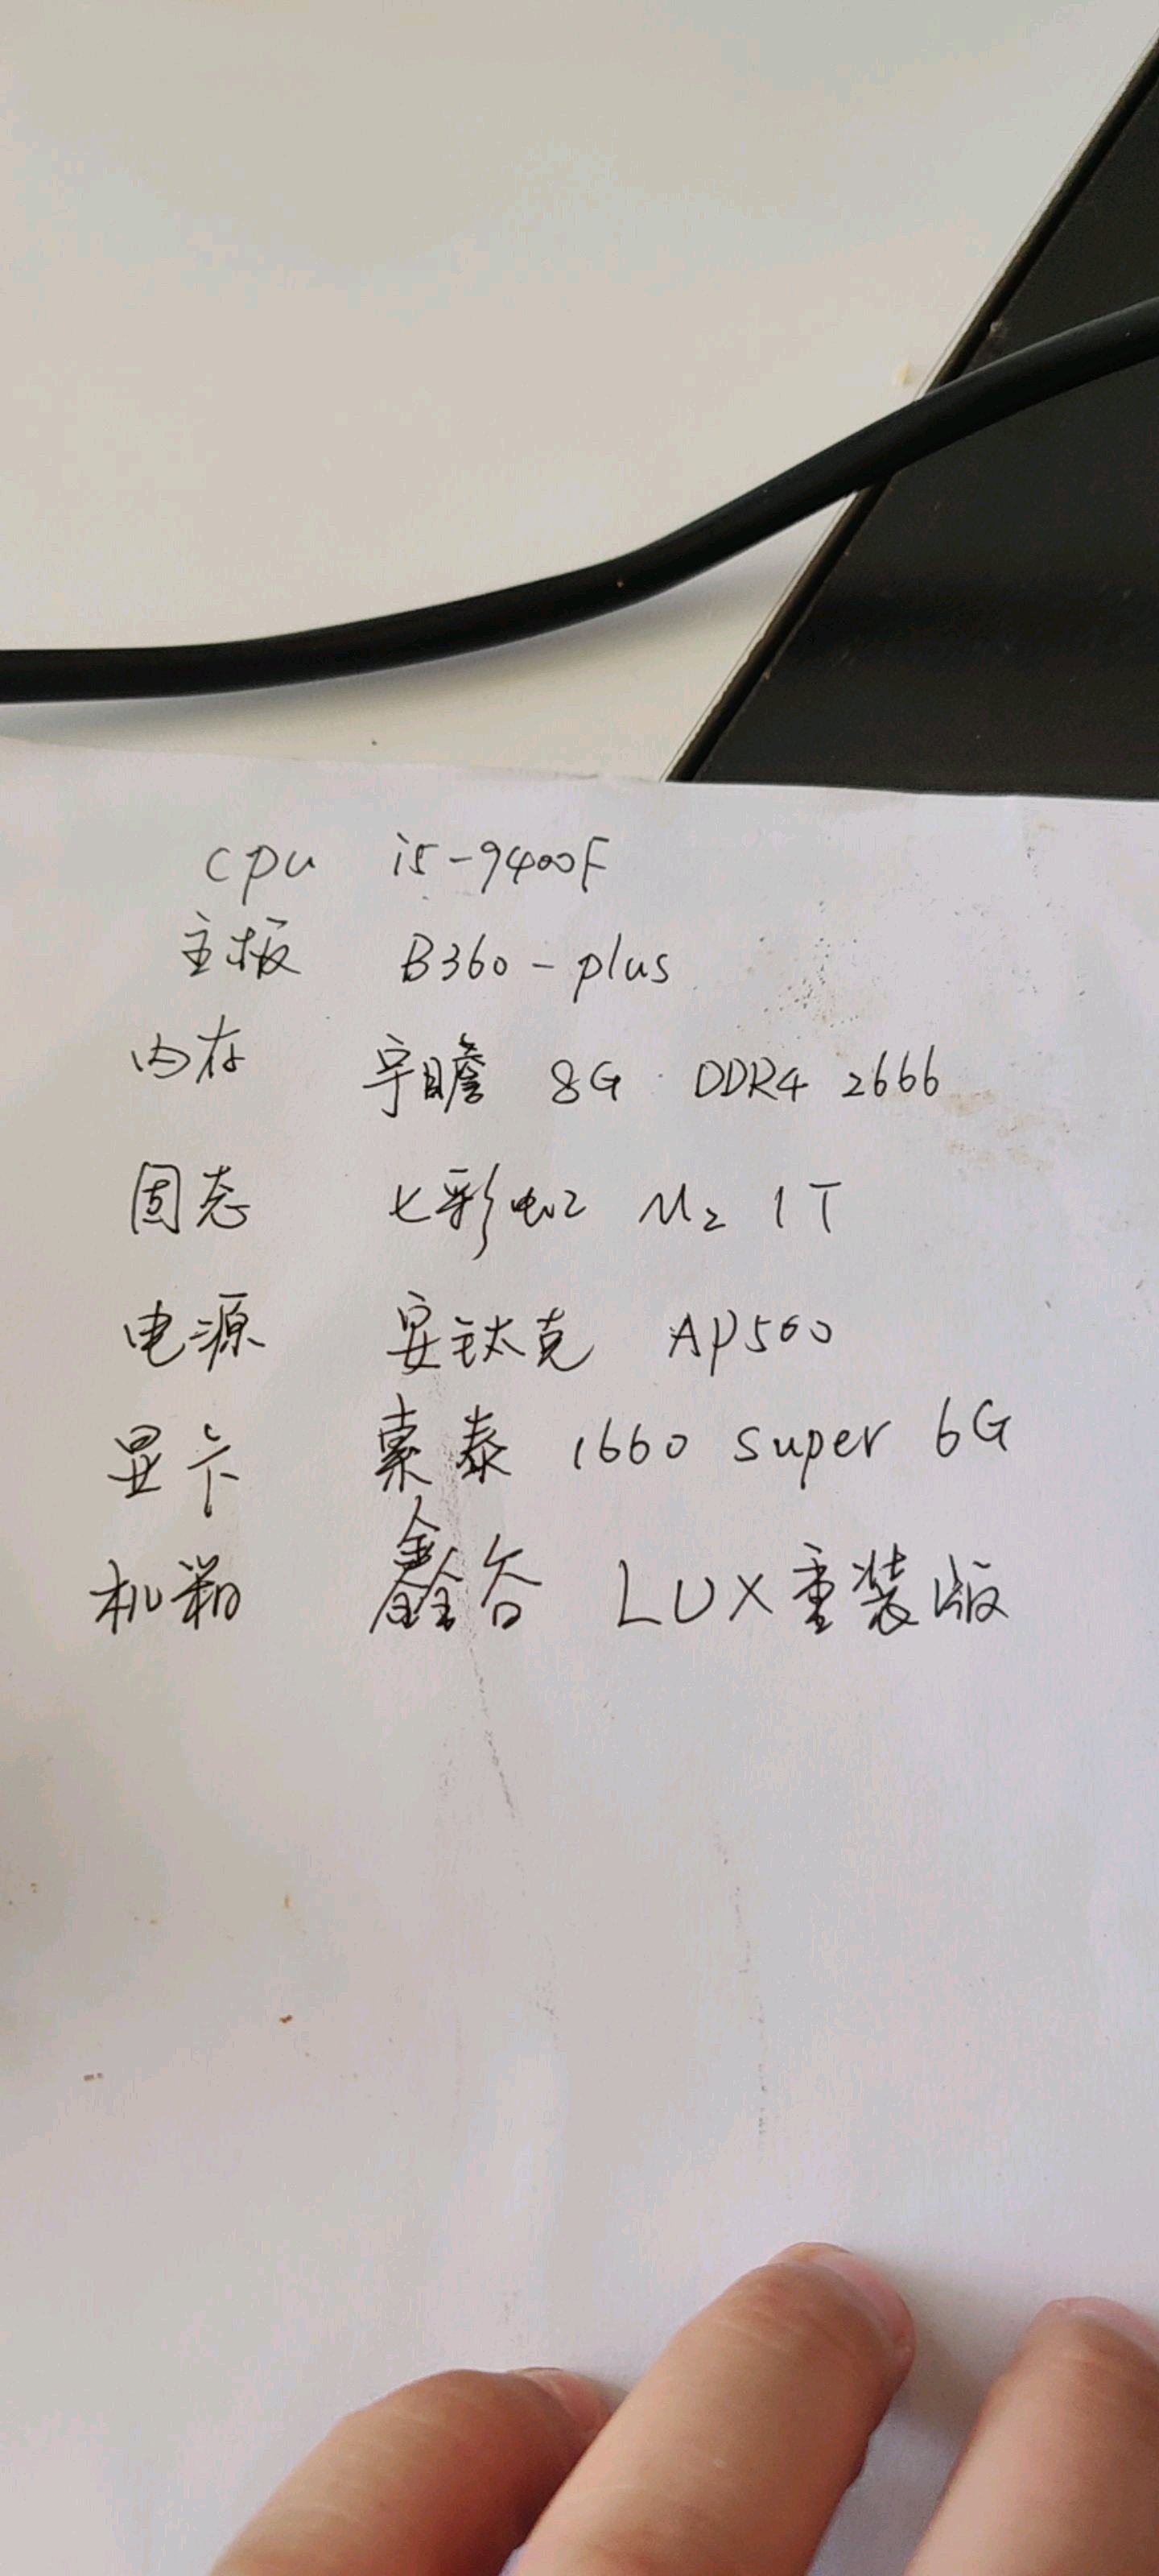 cpu i5-9400F
主板 B360-plus
内存 宇瞻 8G DDR4 2666
固态 七彩虹 M2 1T
电源 安钛克 AP500
显卡 索泰 1660 super 6G
机箱 鑫谷 LUX重装版